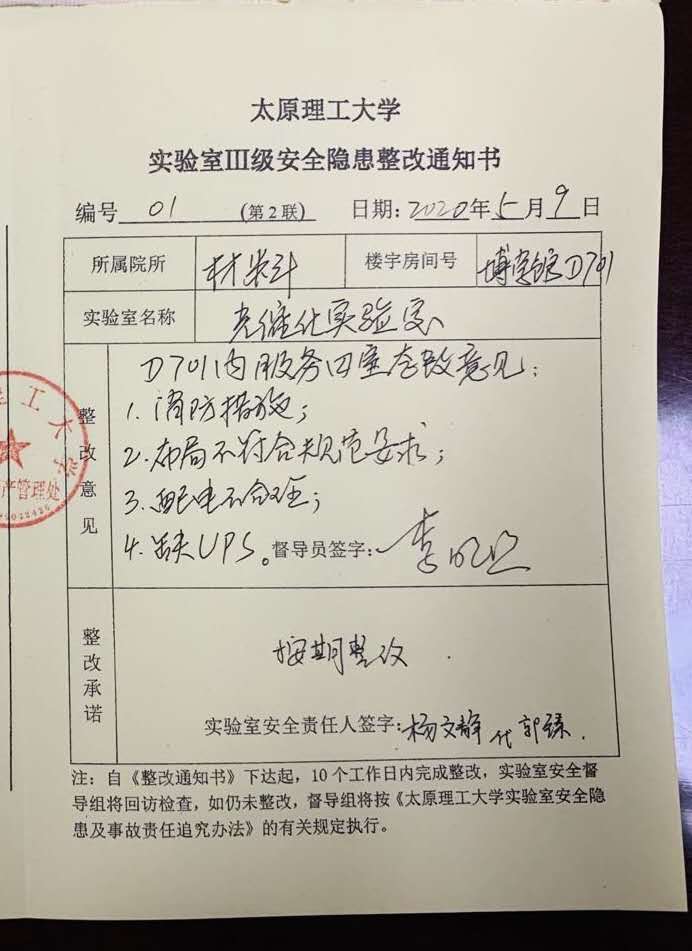 太原理工大学
实验室III级安全隐患整改通知书
编号 01 (第2联) 日期: 2020年5月9日
所属院所 材米斗 楼宇房间号 博学馆D701
实验室名称 光催化实验室
整改意见
D701内服务四室整改意见:
1. 消防措施;
2. 布局不符合规范要求;
3. 配电不合理;
4. 缺UPS。督导员签字: 李
整改承诺
按期整改.
实验室安全责任人签字: 杨文静 代 郭臻.
注:自《整改通知书》下达起,10个工作日内完成整改,实验室安全督
导组将回访检查,如仍未整改,督导组将按《太原理工大学实验室安全隐
患及事故责任追究办法》的有关规定执行。
理工大学
产管理处